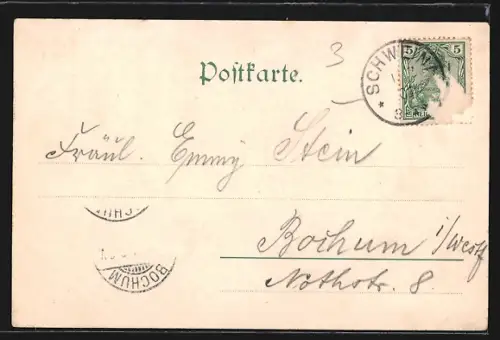 3
5 5
Postkarte.
SCHW
Fräul. Emmy Stein
Bochum i/Westf
Nothstr. 8.
BOCHUM